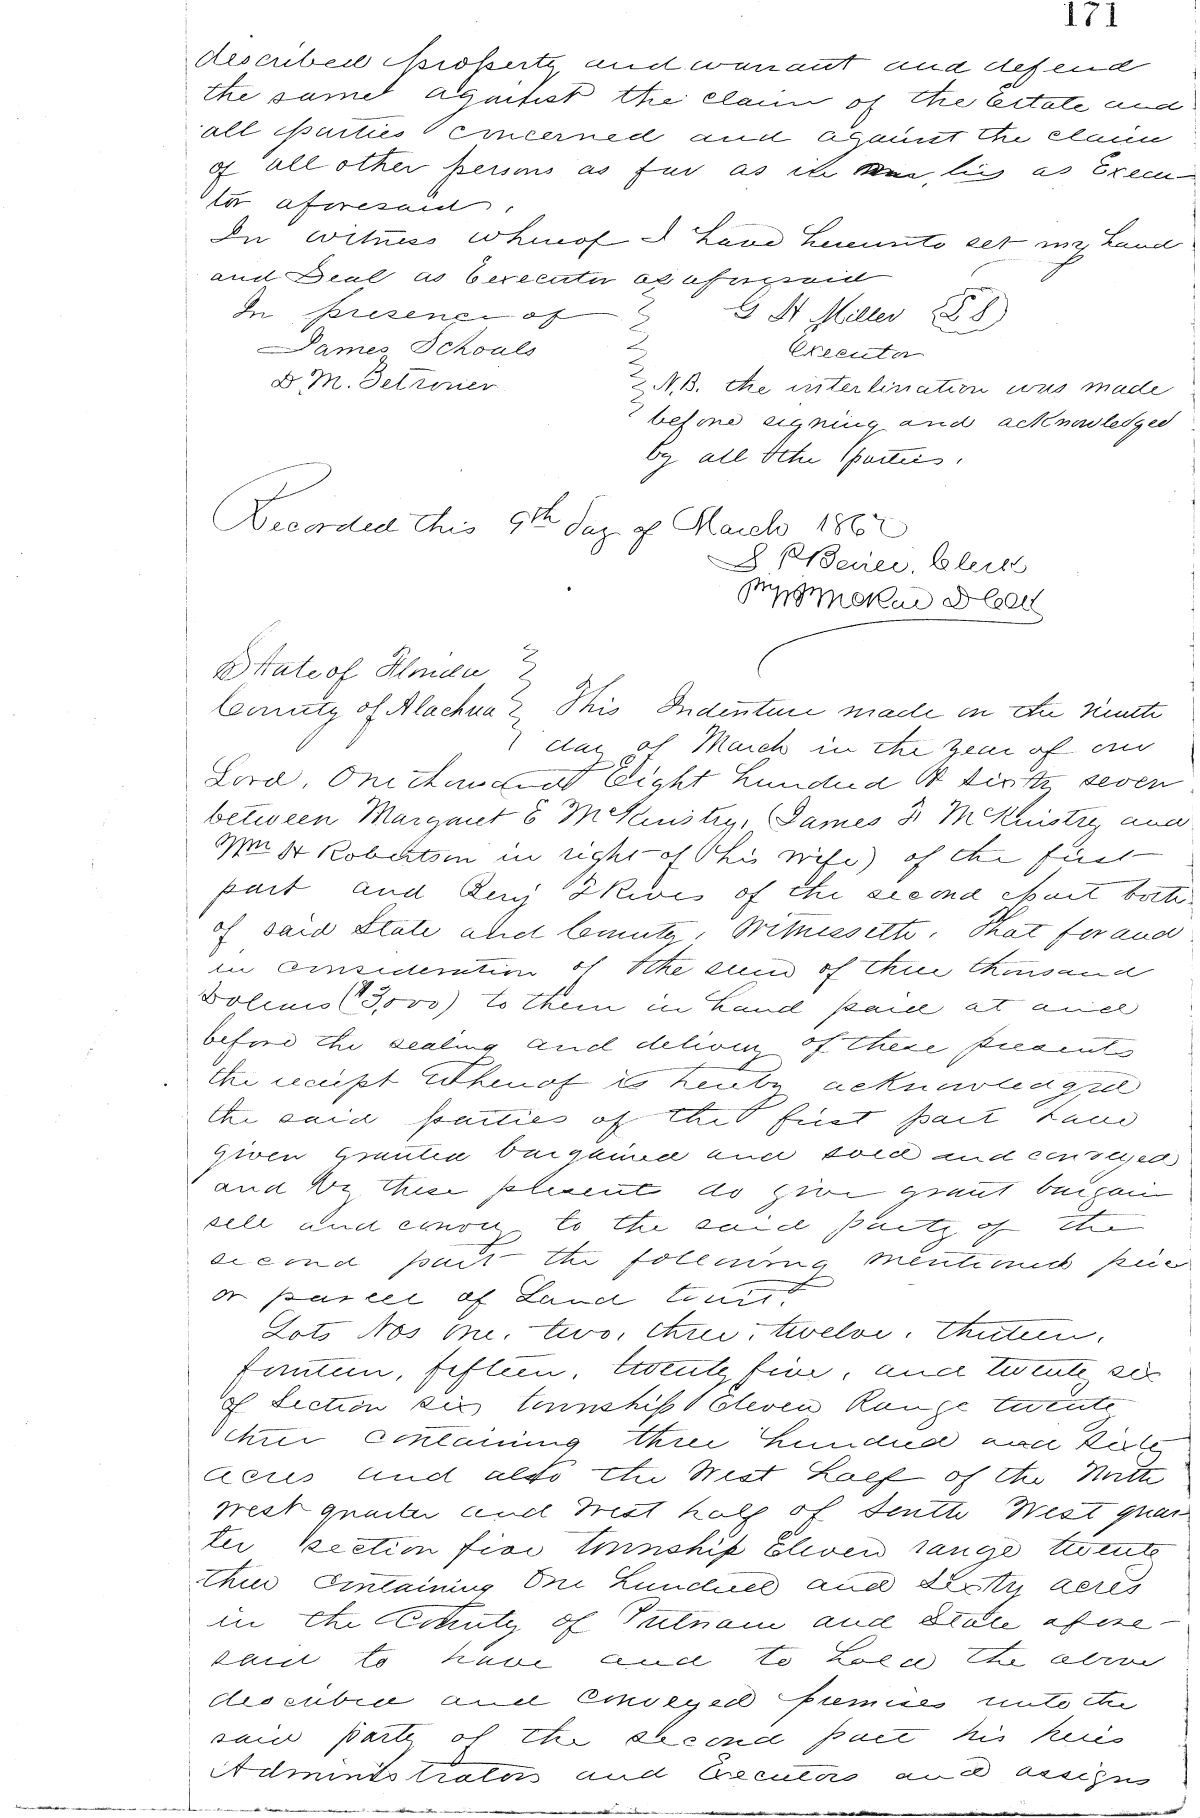 171
described property and warrant and defend
the same against the claim of the Estate and
all parties concerned and against the claim
of all other persons as far as in lies as Execu-
tor aforesaid.
In witness whereof I have hereunto set my hand
and Seal as Executor as aforesaid
In presence of G H Miller
Executor
James Schouls
D. M.
N.B. the interlination was made
before signing and acknowledged
by all the parties.
Recorded this 9th day of March 1867
Clerk
State of Florida
County of Alachua This Indenture made on the ninth
day of March in the year of our
Lord, One thousand Eight hundred & sixty seven
between Margaret E McKinstry, James F McKinstry and
Wm H Robertson in right of (his wife) of the first
part and Benj Rives of the second part both
of said State and County, Witnesseth, That for and
in consideration of the sum of three thousand
Dollars ($3,000) to them in hand paid at and
before the sealing and delivery of these presents
the receipt whereof is hereby acknowledged
the said parties of the first part have
given granted bargained and sold and conveyed
and by these present do give grant bargain
sell and convey to the said party of the
second part the following mentioned piece
or parcel of Land towit.
Lots Nos one, two, three, twelve, thirteen,
fourteen, fifteen, twenty five, and twenty six
of Section six township Eleven Range twenty
three containing three hundred and sixty
acres and also the West half of the North
west quarter and West half of South West quar
ter section five township Eleven range twenty
three containing One hundred and sixty acres
in the County of Putnam and State afore-
said to have and to hold the above
described and conveyed premises unto the
said party of the second part his heirs
Administrators and Executors and assigns